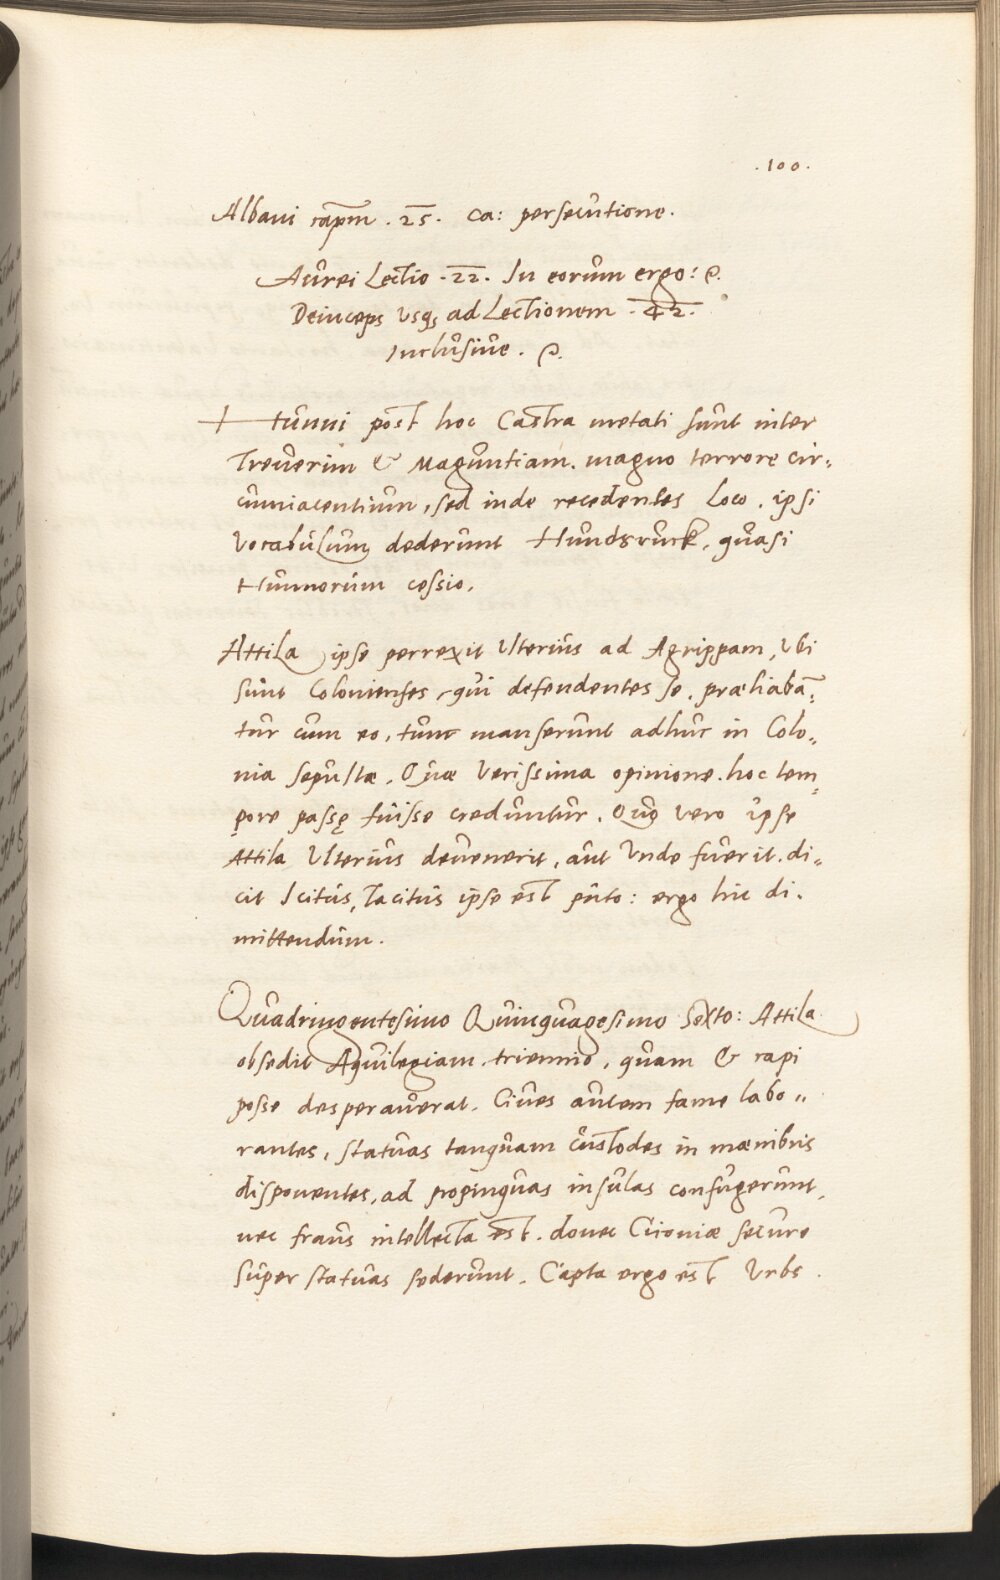 .100.
Albani capm . 25. ca: persecutione.
Aurei Lectio . 22. In eorum ergo:
Deinceps Usq, ad Lectionem . 42.
Inclusive.
Hunni post hoc Castra metati sunt inter
Treverim & Maguntiam. magno terrore cir„
cumiacentium, sed inde recedentes Loco, ipsi
Vocabulum dederunt Hundsruck, quasi
Hunnorum cessio.
Attila ipse perrexit Ulterius ad Agrippam, Ubi
sunt Colonienses, qui defendentes se, præliabā„
tur cum eo, tunc manserunt adhuc in Colo„
nia sepultæ. Quæ Verissima opinione, hoc tem„
pore passę fuisse creduntur. Quo vero ipse
Attila Ulterius devenerit, aut Unde fuerit. di„
cit Icitus, Tacitus ipse est puto: ergo hic di„
mittendum.
Quadringentesimo Quinquagesimo Sexto: Attila
obsedit Aquilegiam triennio, quam & capi
posse desperaverat. Cives autem fame labo„
rantes, statuas tanquam Custodes in mœnibus
disponentes, ad propinquas insulas confugerunt,
nec fraus intellecta est. donec Ciconiæ secure
super statuas sederunt. Capta ergo est Urbs.